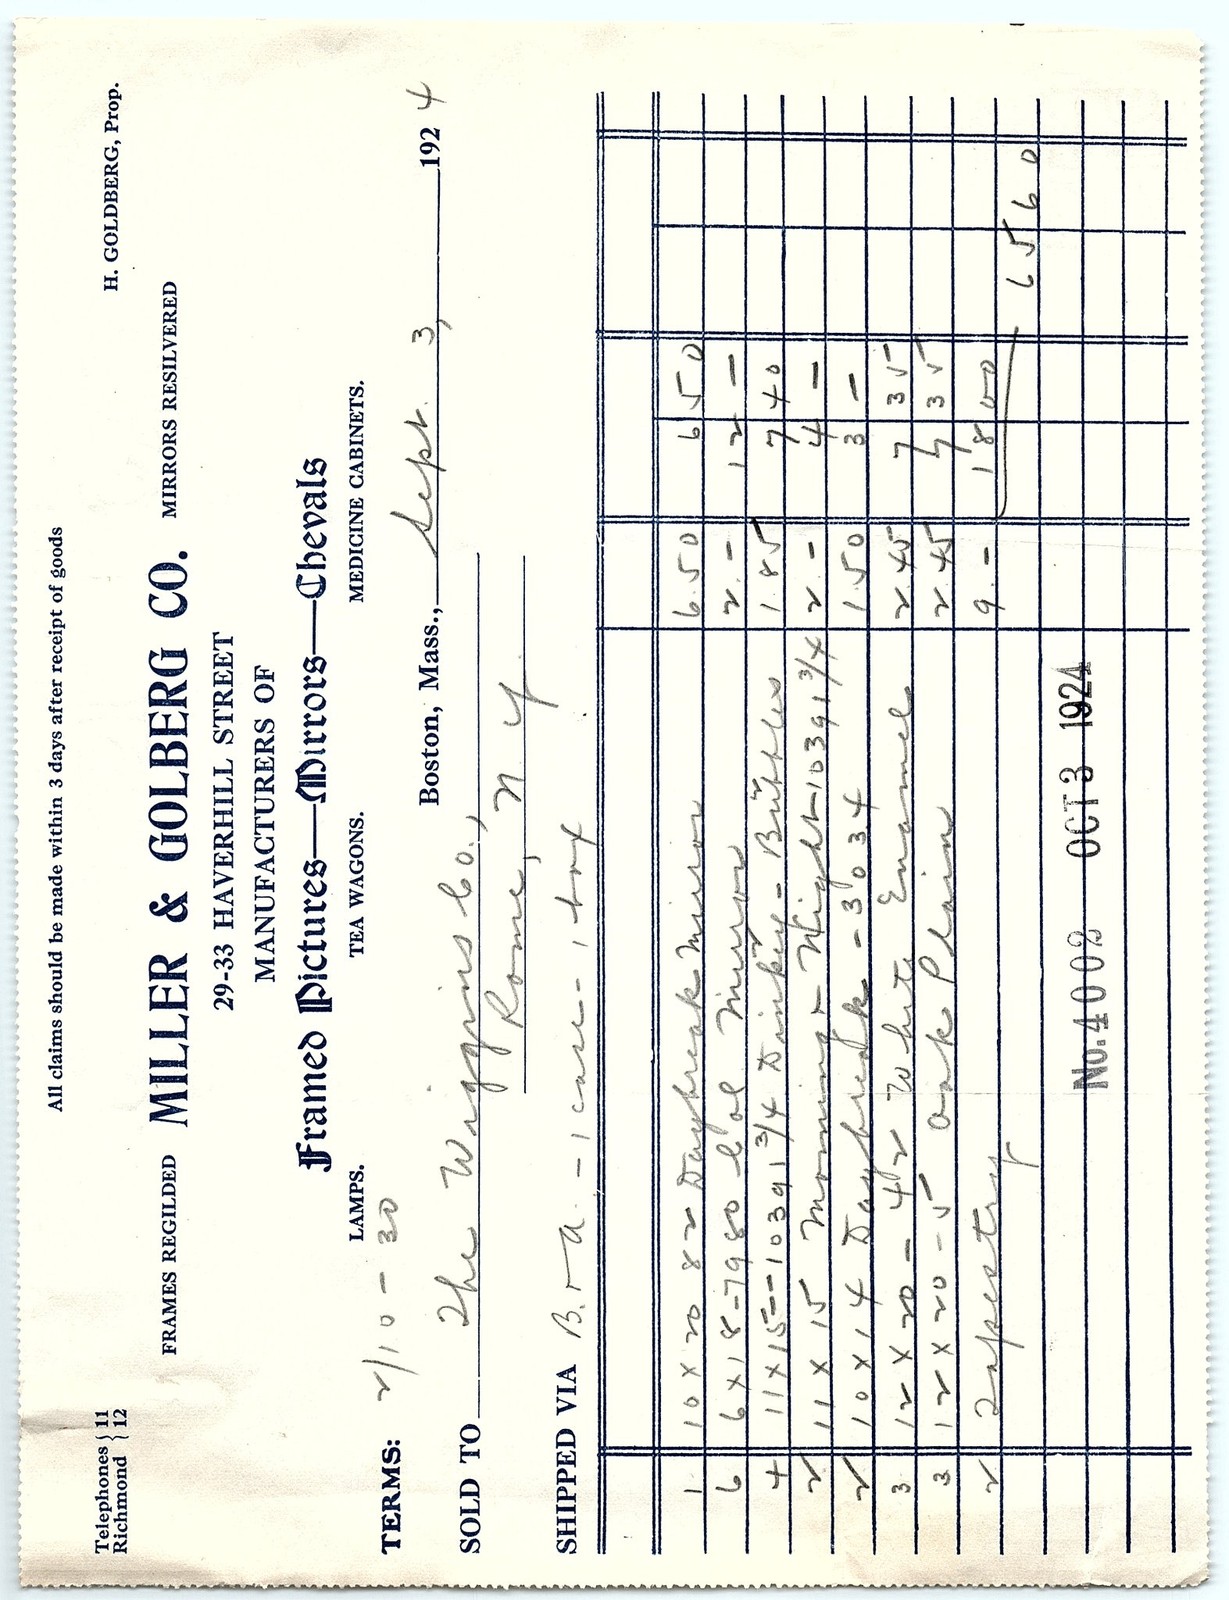 All claims should be made within 3 days after receipt of goods
Telephones Richmond { 11 12
H. GOLDBERG, Prop.
FRAMES REGILDED MILLER & GOLBERG CO. MIRRORS RESILVERED
29-33 HAVERHILL STREET
MANUFACTURERS OF
Framed Pictures—Mirrors—Chevals
LAMPS. TEA WAGONS. MEDICINE CABINETS.
TERMS: 2/10 - 30 Boston, Mass., Sept. 3, 1924
SOLD TO The Wiggins Co.,
Rome, N Y
SHIPPED VIA B. & A. - 1 case - 1 box
1 10 x 20 82 Daybreak Mirror 6.50 6 50
6 6 x 18 - 7980 Col Mirror 2. - 12 -
4 11 x 15 - 10391 3/4 Dinkey - Bubbles 1.85 7 40
2 11 x 15 Morning & Night - 10391 3/4 2 - 4 -
2 10 x 14 Daybreak - 3034 1.50 3 -
3 12 x 20 - 42 White Enamel 2.45 7 35
3 12 x 20 - 5 Oak Plain 2.45 7 35
2 Tapestry 9. - 18 00
65 60
No. 4002 OCT 3 1924